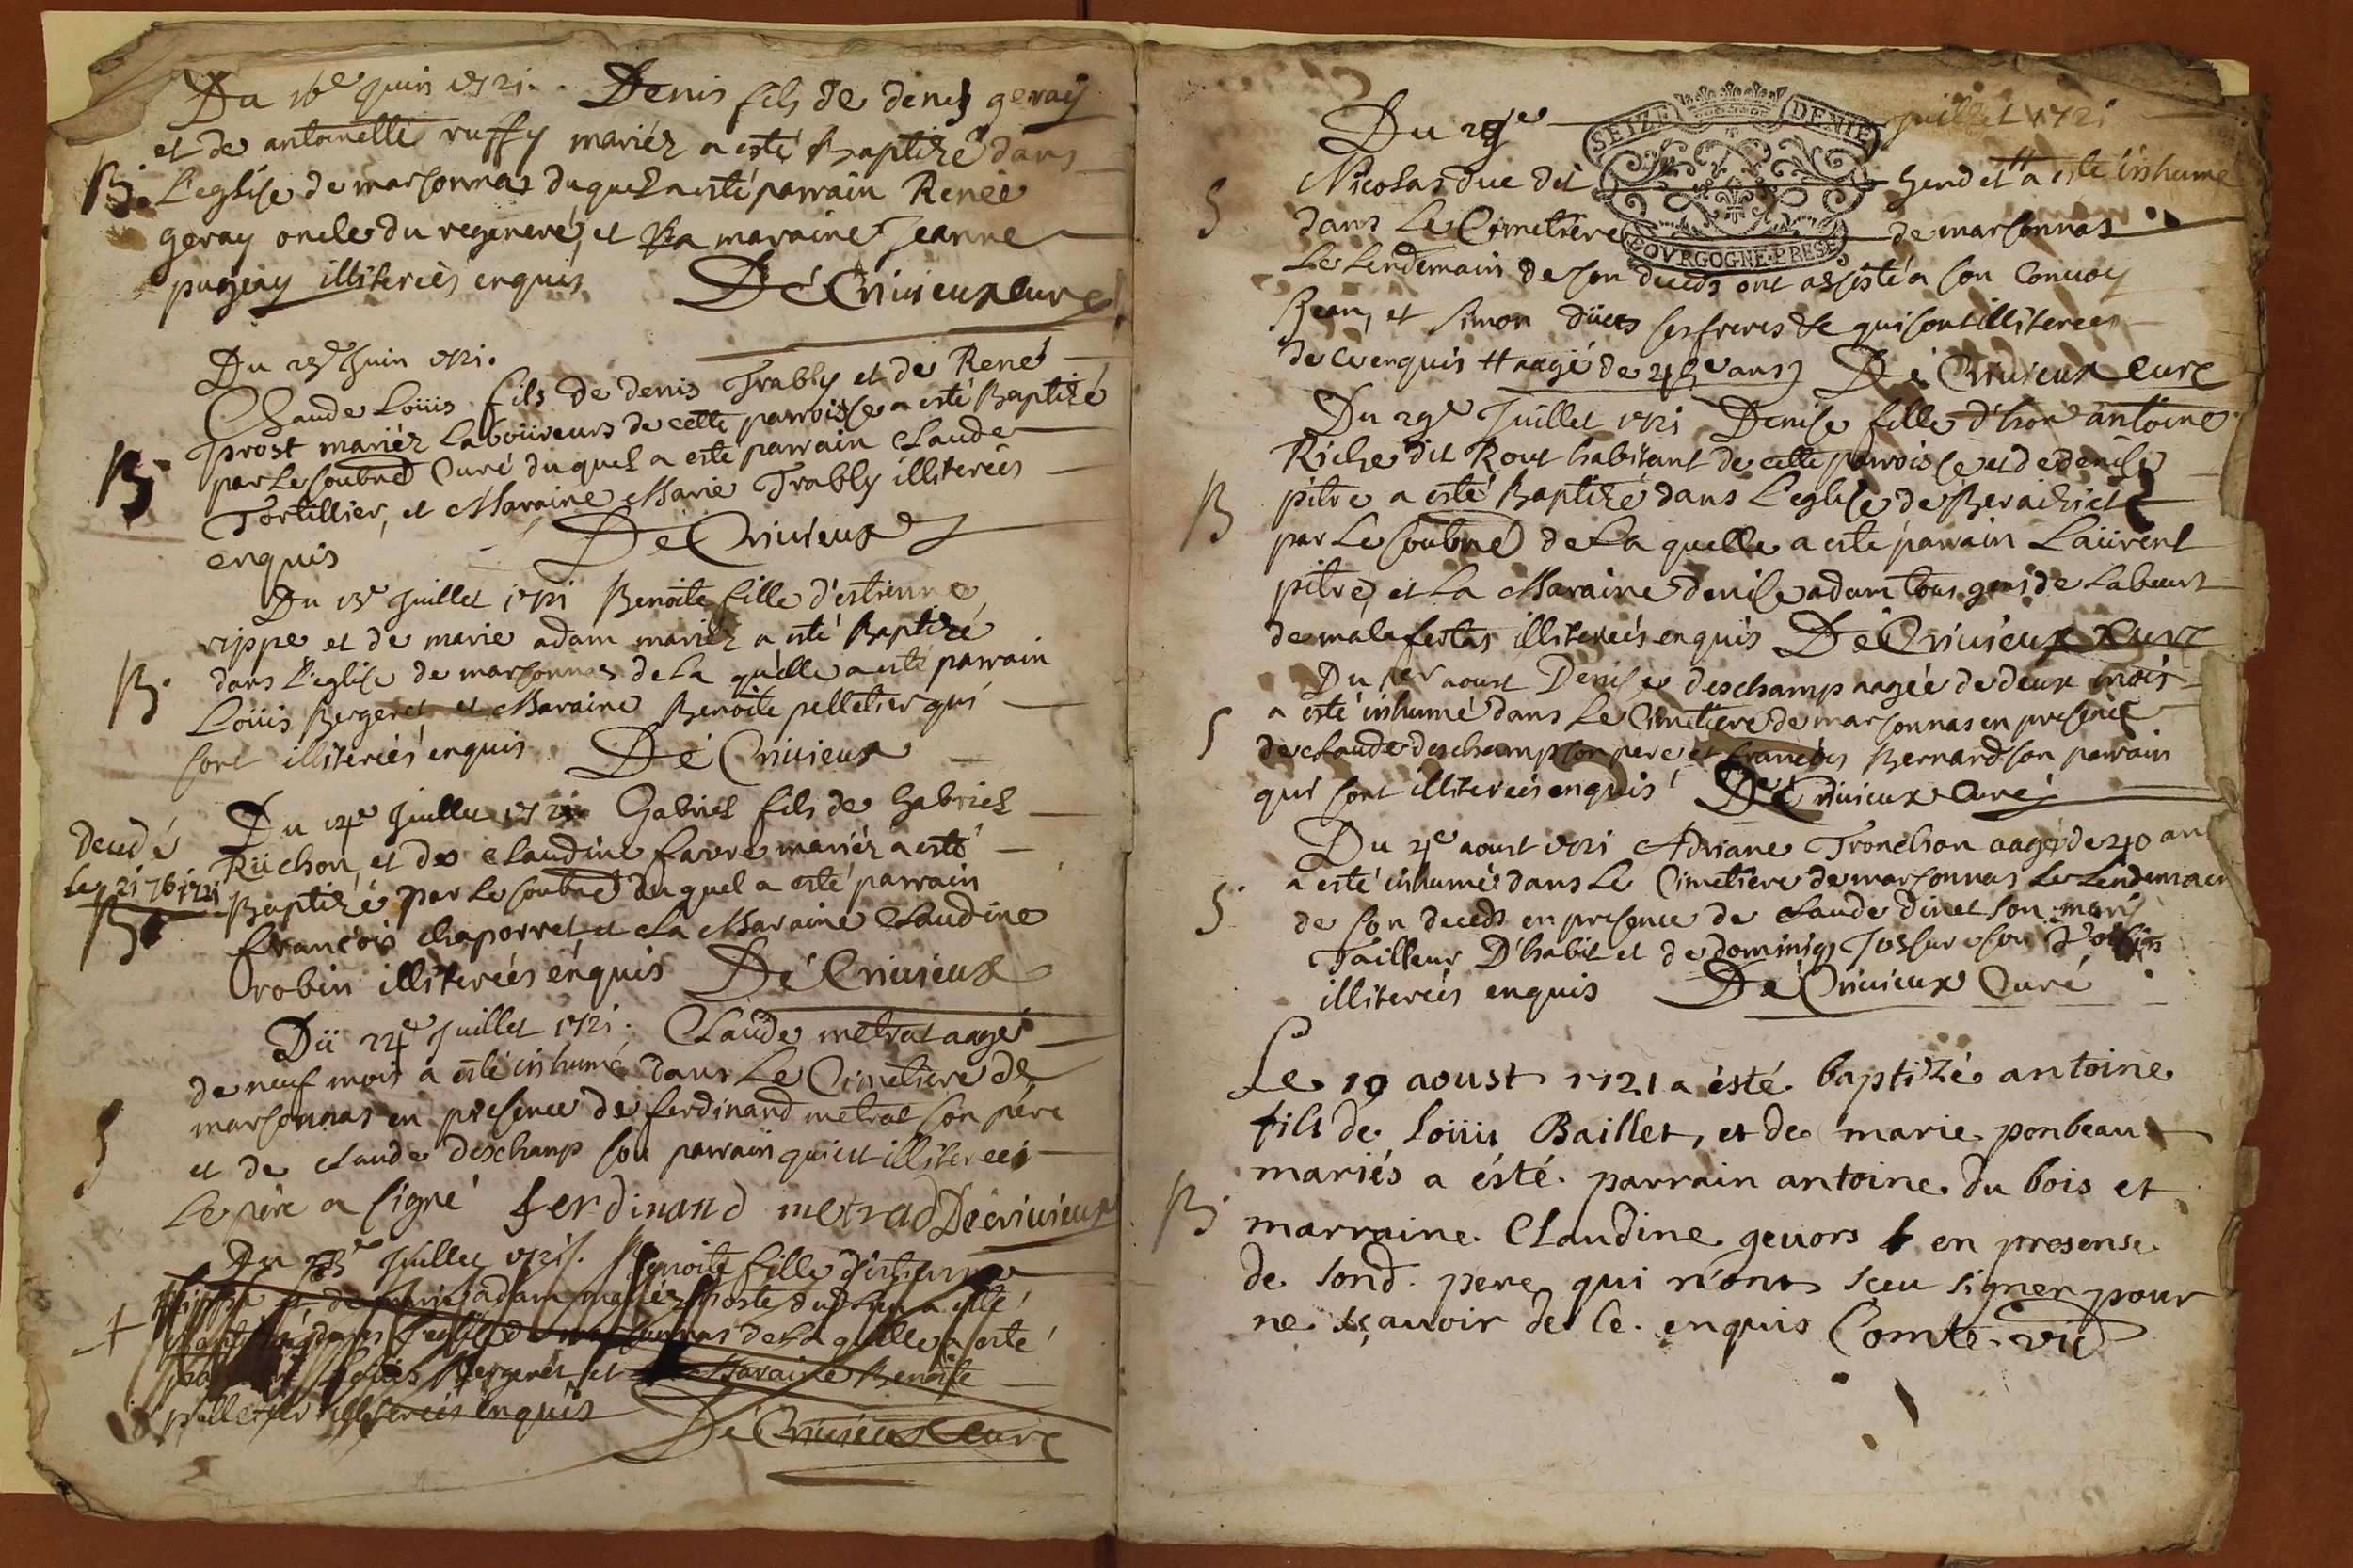 Du 16e juin 1721. Denis fils de denis geray
et de antoinette ruffy mariéz a esté Baptizé dans
B. L'eglise de marsonnas duquel a esté parrain Renée
geray oncle du regeneré, et la maraine Jeanne
pugeay illiterées enquis DeCrivieux curé
Du 23e Juin 1721.
Claude Loüis fils de denis Trably et de René
prost mariéz Laboüreurs de cette parroisse a esté Baptizé
B. par Le soubné Curé duquel a esté parrain Claude
Tortillier, et Maraine Marie Trably illiterées
enquis DeCrivieux
Du 13e Juillet 1721 Benoite fille d'estienne
rippe et de marie adam mariéz a esté Baptizé
B. dans l'eglise de marsonnas de La quelle a esté parrain
Loüis Bergeret et Maraine Benoite pelletier qui
sont illiterées enquis DeCrivieux
Du 14e Juillet 1721 Gabriel fils de Gabriel
decedé Rüchon, et de Claudine favre mariéz a esté
le 21 7b 1721 Baptizé par Le soubné duquel a esté parrain
B. françois chaporret et La Maraine Claudine
robin illiterées enquis DeCrivieux
Dü 22e Juillet 1721. Claude metrat aagé
de neuf mois a esté inhumé dans Le Cimetiere de
S marsonnas en presence de ferdinand metrat son pére
et de claude deschamp son parrain qui est illiterées
Le pére a signé ferdinand metrad Decrivieux
Du Juillet 1721. Benoite fille d'estienne
+ rippe et de marie adam mariéz a esté
dans l'eglise de marsonnas de La quelle a esté
Loüis Bergeret et Maraine Benoite
pelletier illiterées enquis
DeCrivieux curé
Du 29e juillet 1721
SEIZE DENIE
BOVRGOGNE PRESE
S Nicolas duc dit Gendet H a este inhumé
dans Le Cimetiere de marsonnas
Le Lendemain de son deceds ont assisté a son Convoy
Jean, et Simon düces ses freres qui sont illiterées
de ce enquis H aagé de ans DeCrivieux Curé
Du 29e Juillet 1721 Denise fille d'hon antoine
Riche dit Rout habitant de cette parroisse et de denise
B pitre a esté Baptizé dans L'eglise de Beraiziat
par Le soubné de La quelle a esté parrain Laürent
pitre, et La Maraine denise adam tous gens de Labeurt
de malafertas illiterées enquis DeCrivieux Curé
Du 1er aoust Denise deschamp aagée de deux mois
S a esté inhumé dans Le Cimetiere de marsonnas en presence
de claude deschamp son pere et françois Bernard son parrain
qui sont illiterées enquis DeCrivieux Curé
Du 4e aoust 1721 Adriane Tronchon aagé de 40 an
S. a esté inhumé dans Le Cimetiere de marsonnas Le Lendemain
de son deceds en presence de claude dinet son mari
Tailleur D'habit et de dominiq Jossur son Voisin
illiterées enquis DeCrivieux Curé
Le 10 aoust 1721 a ésté baptizé antoine
fils de Loüis Baillet, et de marie ponbeau
mariés a ésté parrain antoine du bois et
B. marraine Claudine gevors en presense
de sond. pere qui n'ont sceu signer pour
ne sçavoir de ce enquis Comte vic